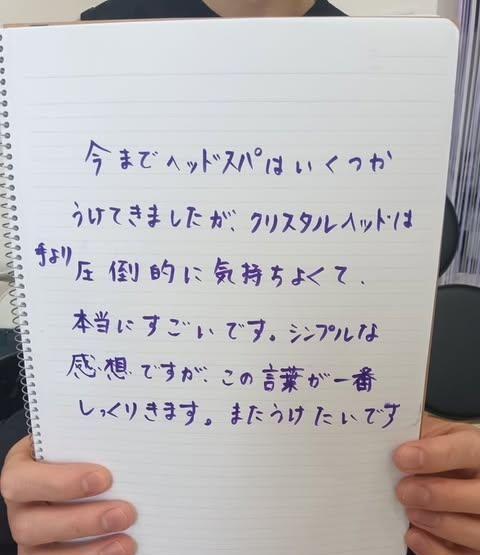 今までヘッドスパはいくつか
うけてきましたが、クリスタルヘッドは
手より圧倒的に気持ちよくて、
本当にすごいです。シンプルな
感想ですが、この言葉が一番
しっくりきます。またうけたいです